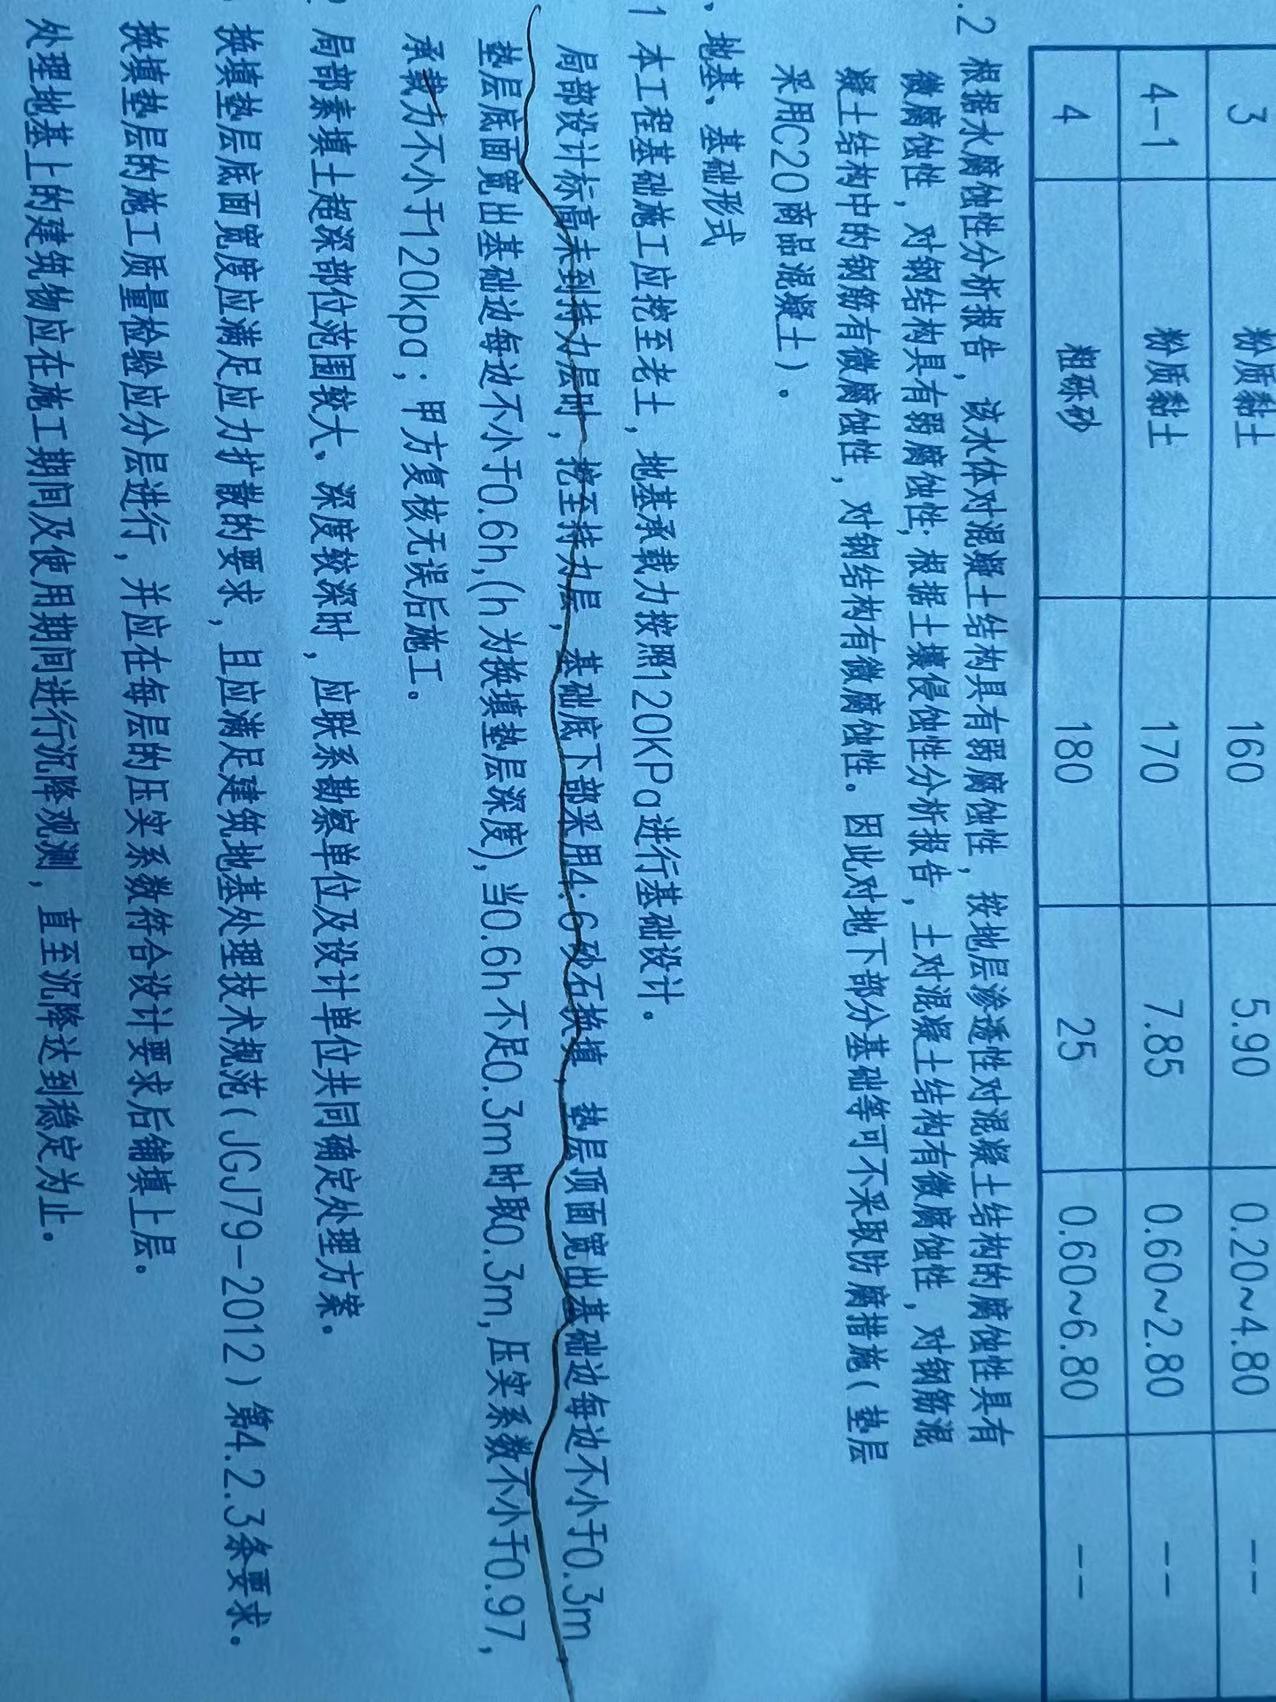 3 粉质黏土 160 5.90 0.20~4.80 --
4-1 粉质黏土 170 7.85 0.60~2.80 --
4 粗砾砂 180 25 0.60~6.80 --
.2 根据水腐蚀性分析报告，该水体对混凝土结构具有弱腐蚀性，按地层渗透性对混凝土结构的腐蚀性具有
微腐蚀性，对钢结构具有弱腐蚀性；根据土壤侵蚀性分析报告，土对混凝土结构有微腐蚀性，对钢筋混
凝土结构中的钢筋有微腐蚀性，对钢结构有微腐蚀性。因此对地下部分基础等可不采取防腐措施（垫层
采用C20商品混凝土）。
、地基、基础形式
1 本工程基础施工应挖至老土，地基承载力按照120KPa进行基础设计。
局部设计标高未到持力层时，挖至持力层，基础底下部采用4:6砂石换填，垫层顶面宽出基础边每边不小于0.3m
垫层底面宽出基础边每边不小于0.6h,(h为换填垫层深度),当0.6h不足0.3m时取0.3m,压实系数不小于0.97，
承载力不小于120kpa；甲方复核无误后施工。
局部素填土超深部位范围较大、深度较深时，应联系勘察单位及设计单位共同确定处理方案。
换填垫层底面宽度应满足应力扩散的要求，且应满足建筑地基处理技术规范(JGJ79-2012)第4.2.3条要求。
换填垫层的施工质量检验应分层进行，并应在每层的压实系数符合设计要求后铺填上层。
处理地基上的建筑物应在施工期间及使用期间进行沉降观测，直至沉降达到稳定为止。